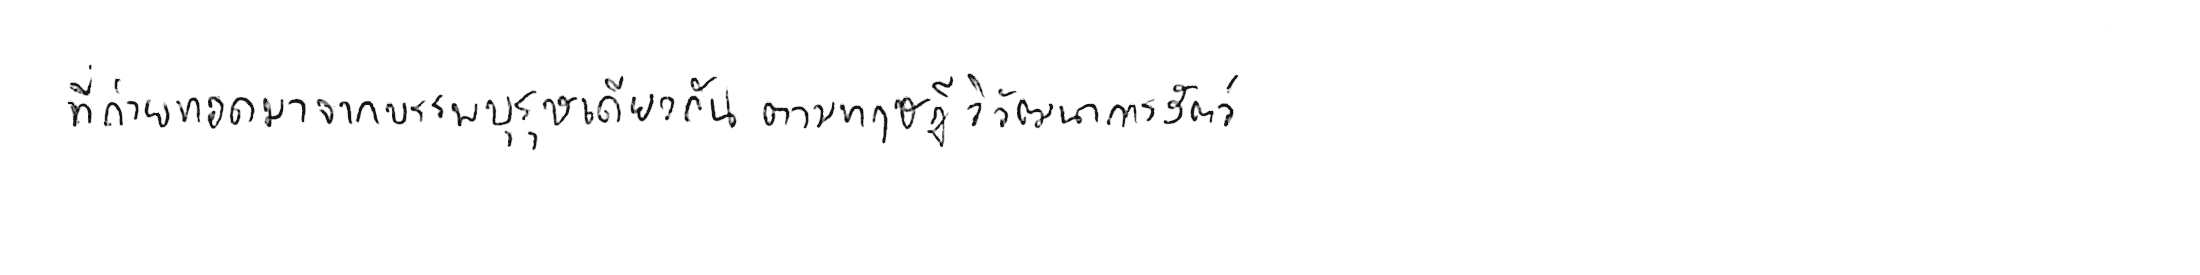 ที่ถ่ายทอดมาจากบรรพบุรุษเดียวกัน ตามทฤษฎีวิวัฒนาการสัตว์